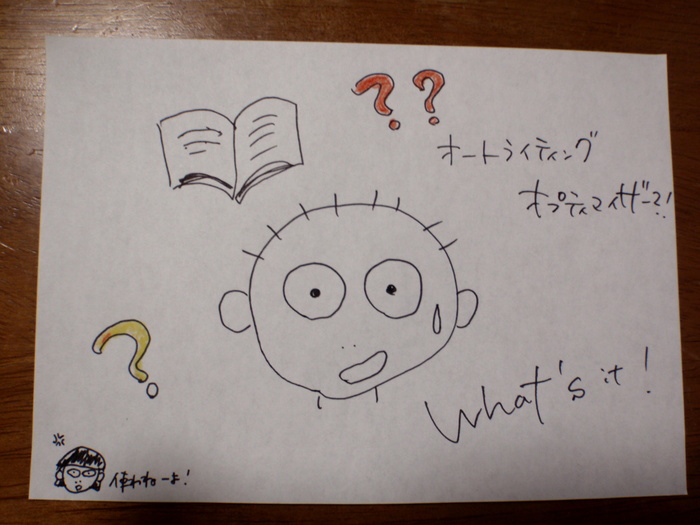 ??
オートライティング
オプティマイザー?!
?
What's it!
使わねーよ!